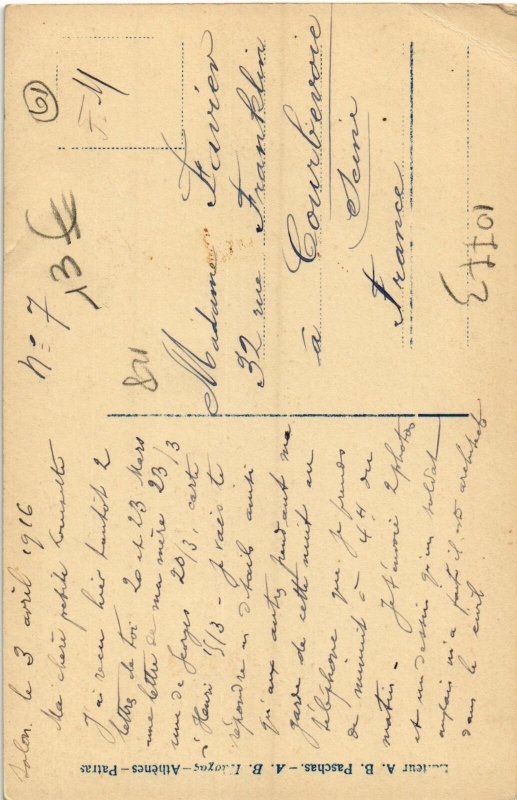 Solon. le 3 avril 1916
n° 7
Ma chère petite
J'ai reçu hier tantôt 2
lettres de toi 20 et 23 Mars
une lettre de ma mère 23/3
une de Georges 20/3, carte
Henri 15/3 - Je vais te
répondre en détails ainsi
qu'aux autres pendant ma
garde de cette nuit au
téléphone que je prends
de minuit à 4H du
matin - Je t'envoie 2 photos
et un dessin qu'un soldat
anglais m'a fait il est architecte
dans le civil
F.M
61
13€
821
Madame Favier
32 rue Franklin
à Courbevoie
Seine
France
Editeur A. B. Paschas. - Athènes-Patras